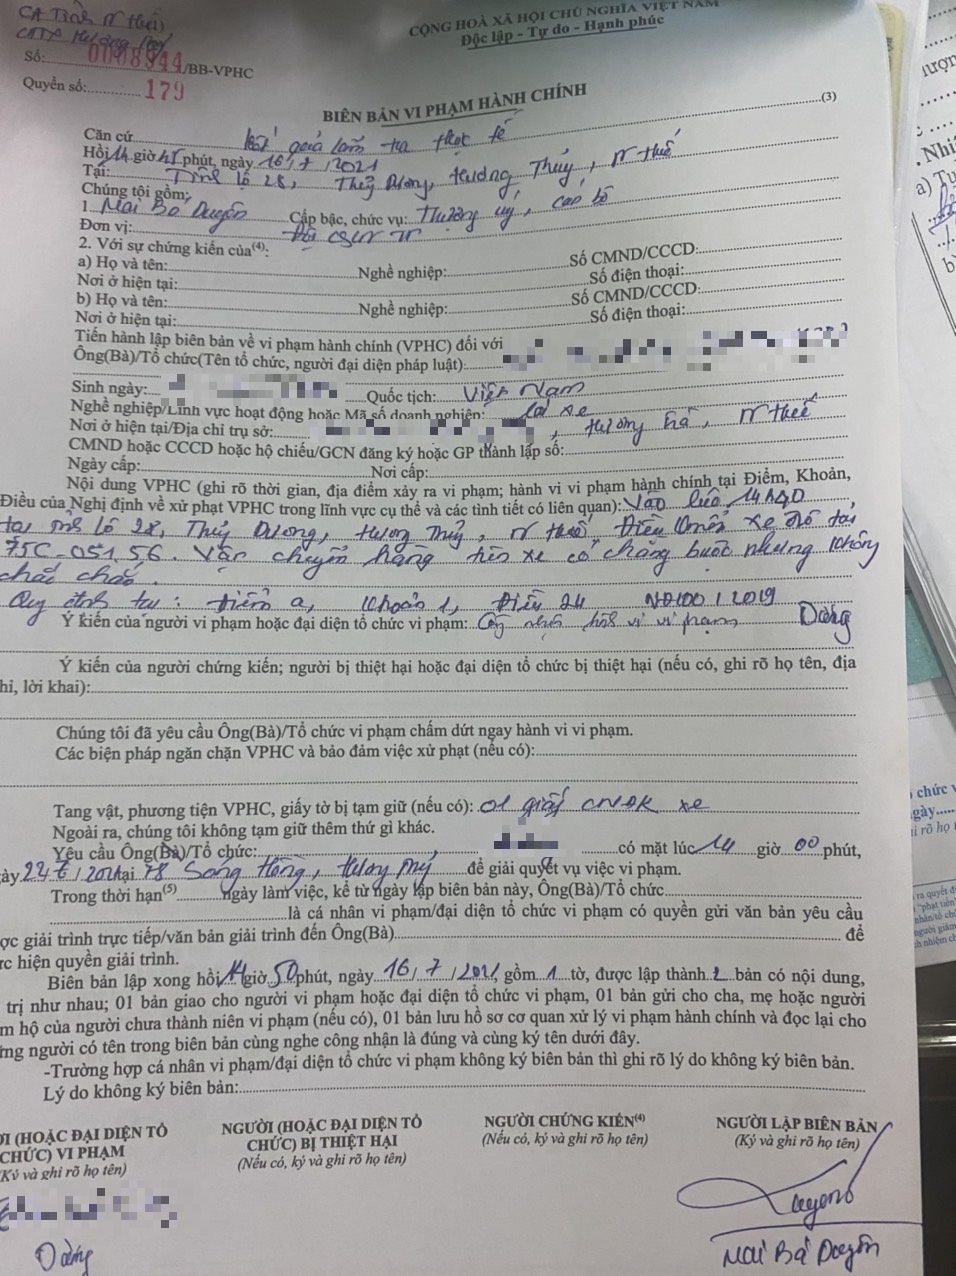 CA Tỉnh TT Huế
CATX Hương Thủy
CỘNG HOÀ XÃ HỘI CHỦ NGHĨA VIỆT NAM
Độc lập - Tự do - Hạnh phúc
Số: 0008944/BB-VPHC
Quyển số: 179
BIÊN BẢN VI PHẠM HÀNH CHÍNH
(3)
Căn cứ kết quả kiểm tra thực tế
Hồi 14 giờ 45 phút, ngày 16/7/2021
Tại: Tỉnh lộ 28, Thủy Dương, Hương Thủy, TT Huế
Chúng tôi gồm:
1. Mai Bá Duyên Cấp bậc, chức vụ: Thượng úy, cán bộ
Đơn vị: Đội CSGT TT
2. Với sự chứng kiến của(4):
a) Họ và tên: Nghề nghiệp: Số CMND/CCCD:
Nơi ở hiện tại: Số điện thoại:
b) Họ và tên: Nghề nghiệp: Số CMND/CCCD:
Nơi ở hiện tại: Số điện thoại:
Tiến hành lập biên bản về vi phạm hành chính (VPHC) đối với
Ông(Bà)/Tổ chức(Tên tổ chức, người đại diện pháp luật):
Sinh ngày: Quốc tịch: Việt Nam
Nghề nghiệp/Lĩnh vực hoạt động hoặc Mã số doanh nghiệp: lái xe
Nơi ở hiện tại/Địa chỉ trụ sở: , Hương Trà, TT Huế
CMND hoặc CCCD hoặc hộ chiếu/GCN đăng ký hoặc GP thành lập số:
Ngày cấp: Nơi cấp:
Nội dung VPHC (ghi rõ thời gian, địa điểm xảy ra vi phạm; hành vi vi phạm hành chính tại Điểm, Khoản,
Điều của Nghị định về xử phạt VPHC trong lĩnh vực cụ thể và các tình tiết có liên quan): Vào lúc 14h40
tại tỉnh lộ 28, Thủy Dương, Hương Thủy, TT Huế, Điều khiển xe ô tô tải
75C-051.56. Vận chuyển hàng trên xe có chằng buộc nhưng không
chắc chắn.
Quy định tại: Điểm a, khoản 1, Điều 24 NĐ100/2019
Ý kiến của người vi phạm hoặc đại diện tổ chức vi phạm: Công nhận hành vi vi phạm
Ý kiến của người chứng kiến; người bị thiệt hại hoặc đại diện tổ chức bị thiệt hại (nếu có, ghi rõ họ tên, địa
hỉ, lời khai):
Chúng tôi đã yêu cầu Ông(Bà)/Tổ chức vi phạm chấm dứt ngay hành vi vi phạm.
Các biện pháp ngăn chặn VPHC và bảo đảm việc xử phạt (nếu có):
Tang vật, phương tiện VPHC, giấy tờ bị tạm giữ (nếu có): 01 giấy CNĐK xe
Ngoài ra, chúng tôi không tạm giữ thêm thứ gì khác.
Yêu cầu Ông(Bà)/Tổ chức: có mặt lúc 14 giờ 00 phút,
ày 22/7/2021 tại 78 Sóng Hồng, để giải quyết vụ việc vi phạm.
Trong thời hạn(5) ngày làm việc, kể từ ngày lập biên bản này, Ông(Bà)/Tổ chức
là cá nhân vi phạm/đại diện tổ chức vi phạm có quyền gửi văn bản yêu cầu
ợc giải trình trực tiếp/văn bản giải trình đến Ông(Bà) để
ực hiện quyền giải trình.
Biên bản lập xong hồi 14 giờ 50 phút, ngày 16/7/2021, gồm 1 tờ, được lập thành 2 bản có nội dung,
trị như nhau; 01 bản giao cho người vi phạm hoặc đại diện tổ chức vi phạm, 01 bản gửi cho cha, mẹ hoặc người
m hộ của người chưa thành niên vi phạm (nếu có), 01 bản lưu hồ sơ cơ quan xử lý vi phạm hành chính và đọc lại cho
ững người có tên trong biên bản cùng nghe công nhận là đúng và cùng ký tên dưới đây.
-Trường hợp cá nhân vi phạm/đại diện tổ chức vi phạm không ký biên bản thì ghi rõ lý do không ký biên bản.
Lý do không ký biên bản:
ỜI (HOẶC ĐẠI DIỆN TỔ
CHỨC) VI PHẠM
(Ký và ghi rõ họ tên)
NGƯỜI (HOẶC ĐẠI DIỆN TỔ
CHỨC) BỊ THIỆT HẠI
(Nếu có, ký và ghi rõ họ tên)
NGƯỜI CHỨNG KIẾN(4)
(Nếu có, ký và ghi rõ họ tên)
NGƯỜI LẬP BIÊN BẢN
(Ký và ghi rõ họ tên)
Mai Bá Duyên